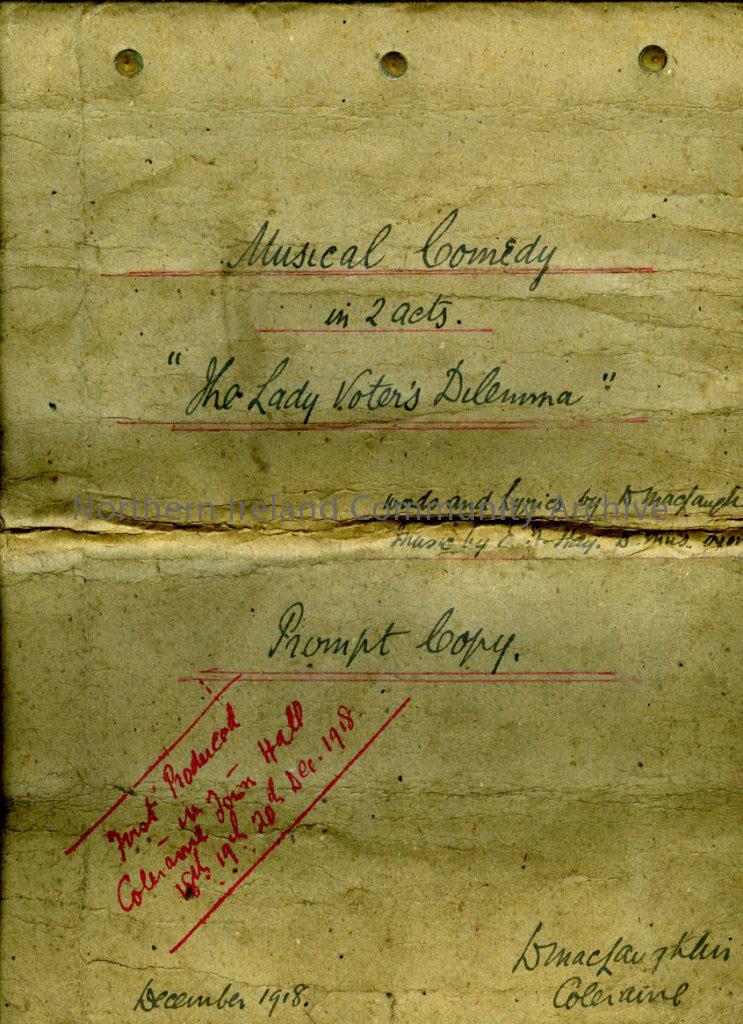 Musical Comedy
in 2 acts.
"The Lady Voter's Dilemma"
words and lyrics by D MacLaugh
Northern Ireland Community Archive
Music by E. J. Hay. D. Mus. oxon
Prompt Copy.
First Produced
in
Coleraine Town Hall
18th 19th 20th Dec. 1918.
DMacLaughlin
Coleraine
December 1918.